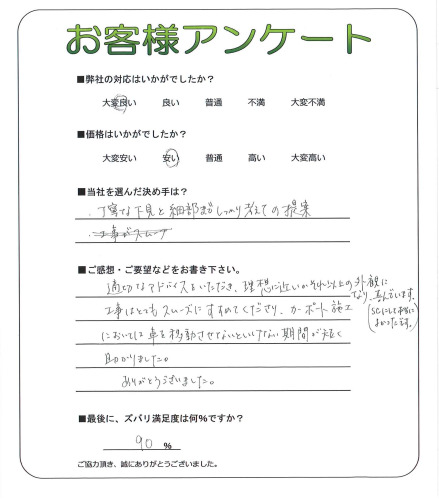 お客様アンケート
■弊社の対応はいかがでしたか?
大変良い 良い 普通 不満 大変不満
■価格はいかがでしたか?
大変安い 安い 普通 高い 大変高い
■当社を選んだ決め手は?
・丁寧な下見と細部までしっかり考えての提案
・工事がスムーズ
■ご感想・ご要望などをお書き下さい。
適切なアドバイスをいただき、理想に近いかそれ以上の外観に
なり、喜んでいます。
工事はとてもスムーズにすすめてくださり、カーポート施工
においては車を移動させないといけない期間が短く
助かりました。
ありがとうございました。
(SGにして本当に
よかったです。)
■最後に、ズバリ満足度は何%ですか?
90 %
ご協力頂き、誠にありがとうございました。